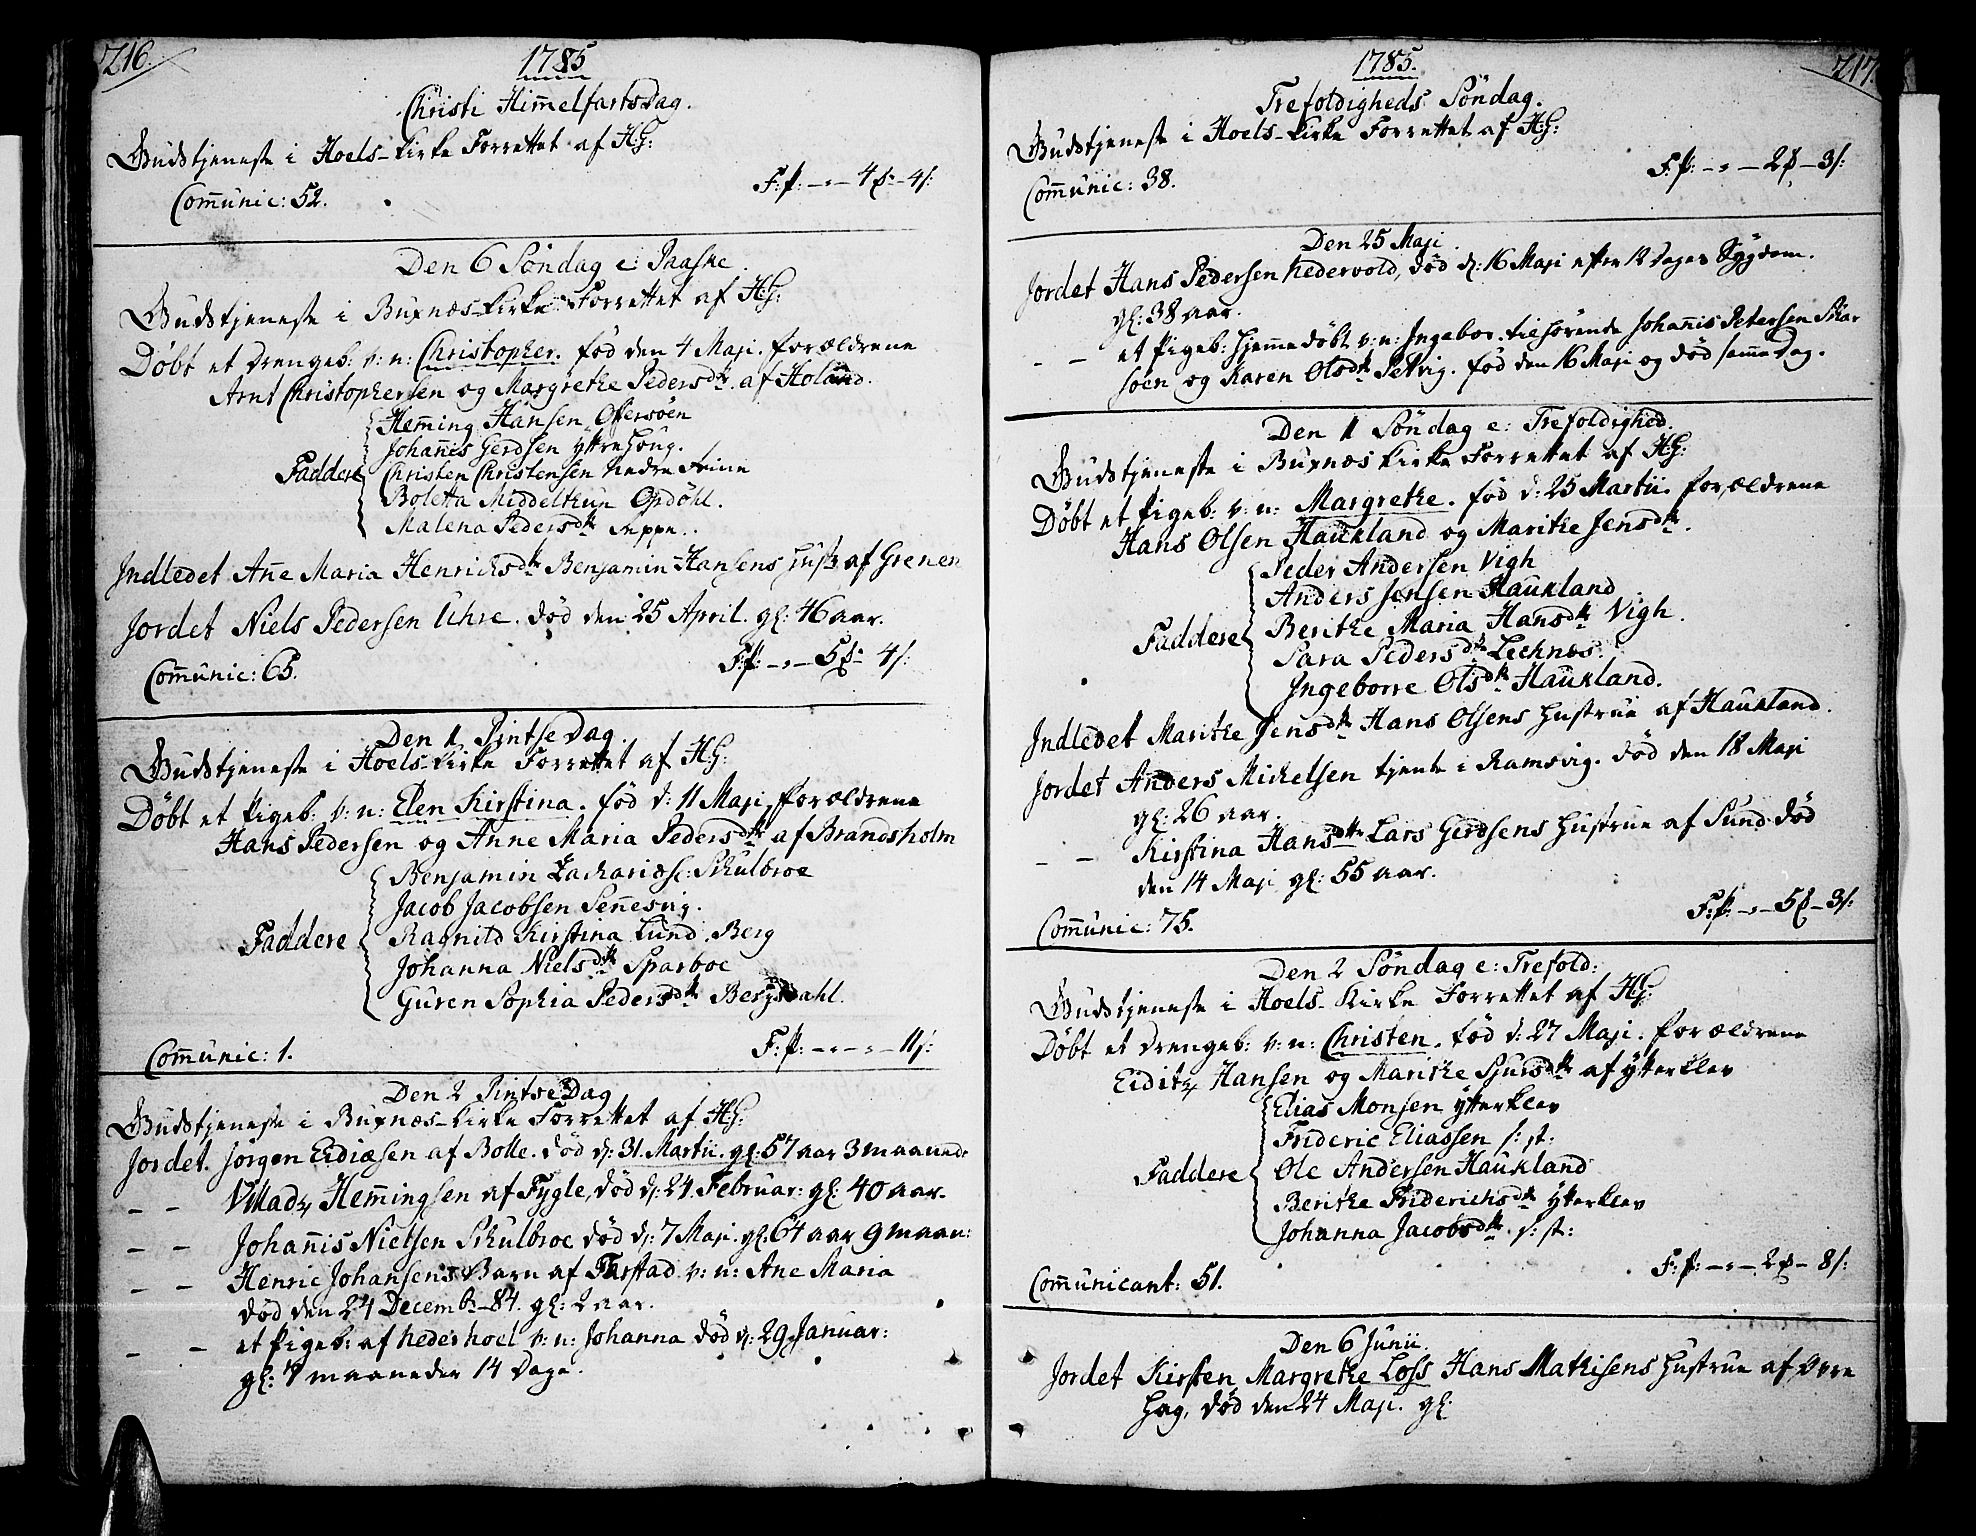 216.
1785
Christi Him̄elfartsdag.
Gudstjeneste i Hoels-kirke Forrettet af H:G:
F:p: -"- 4 -4 s:
Com̄unic: 52.
Den 6 Söndag e: Paaske.
Gudstjeneste i Buxnæs-kirke Forrettet af H:G:
Döbt et drengeb: v: n: Christopher. föd den 4 Maji. forældrene
Arnt Christophersen og Margrethe Pedersdtr. af Holand.
Hem̄ing Hansen Offersöen
Johan̄is Gerdsen Yttrehoug.
Faddere Christen Christensen nedre
Boletta Middelthun Opdöhl.
Malena Pedersdtr Leppe.
Indledet An̄e Maria Henrichsdtr Benjamin Hansens Hustr af Grenen
Jordet Niels Pedersen Uhre. död den 25 April. gl: 46 aar.
F:p: -"- 5 - 4 s:
Com̄unic: 65.
Den 1 Pintse Dag.
Gudstjeneste i Hoels-kirke Forrettet af H:G:
Döbt et Pigeb: v: n: Elen Kirstina. föd d: 11 Maji, forældrene
Hans Pedersen og Anne Maria Pedersdtr af Brandsholm
Benjamin Zachariæs: Skulbroe
Jacob Jacobsen Sen̄esvig.
Faddere Ragnild Kirstina Lund. Berg
Johanna Nielsdtr Sparboe
Guren Sophia Pedersdtr Bergsdahl.
F:p: -"-"- 11 s:
Com̄unic: 1.
Den 2 Pintse Dag
Gudstjeneste i Buxnæs-kirke Forrettet af H:G:
Jordet. Jörgen Eidiæsen af Bolle. död d: 31. Martii. gl: 57 aar 3 maaneder
- - Villadz Hem̄ingsen af Fygle, död d: 24 Februar: gl: 40 aar.
- - Johan̄is Nielsen Skulbroe död d: 7 Maji. gl: 64 aar 9 maan:
- - Henric Johansens Barn af Farstad v: n: Ane Maria
död den 24 Decembr-84. gl: 2 aar.
- - et Pigeb: af nederhoel v: n: Johanna död d: 29 Januar:
gl: 7 maaneder 14 Dage.
217
1785.
Trefoldigheds Söndag.
Gudstjeneste i Hoels-kirke Forrettet af H:G:
F:p: -"- 2 -3 s:
Com̄unic: 38.
Den 25 Maji.
Jordet Hans Pedersen nedervold, död d: 16 Maji efter 12 dages Sygdom.
gl: 38 aar.
- - et Pigeb: hjemmedöbt v: n: Ingebor. tilhörende Johan̄is Petersen Skar
söen og Karen Olsdtr Petvig. föd den 16 Maji og död sam̄e Dag.
Den 1 Söndag e: Trefoldighed.
Gudstjeneste i Buxnæs kirke Forrettet af H:G:
Döbt et Pigeb: v: n: Margrethe. föd d: 25 Martii. forældrene
Hans Olsen Haukland og Marithe Jensdtr.
Peder Andersen Vigh
Anders Jensen Haukland
Faddere Berithe Maria Hansdtr Vigh.
Sara Pedersdtr Lechnæs.
Ingeborre Olsdtr Haukland.
Indledet Marithe Jensdtr Hans Olsens Hustrue af Haukland.
Jordet Anders Mickelsen tjente i Ramsvig. död den 18 Maji
gl: 26 aar.
- - Kirstina Hansdtr Lars Gerdsens Hustrue af Sund död
den 14 Maji gl: 55 aar.
F:p: -"- 5 -3 s:
Com̄unic: 75.
Den 2 Söndag e: Trefold:
Gudstjeneste i Hoels-kirke Forrettet af H:G:
Döbt et drengeb: v: n: Christen. föd d: 27 Maji. forældrene
Eiditz Hansen og Marithe Sjursdtr af Ytterklev
Elias Monsen Ytterklev
Frideric Eliassen s: st:
Faddere Ole Andersen Haukland
Berithe Friderichsdtr Ytterklev
Johanna Jacobsdtr. s: st:
F:p: -"- 2 - 8 s:
Com̄unicant: 51.
Den 6 Junii.
Jordet Kirsten Margrethe Loss Hans Mathisens Hustrue af Övre
Hag, död den 24 Maji. gl: